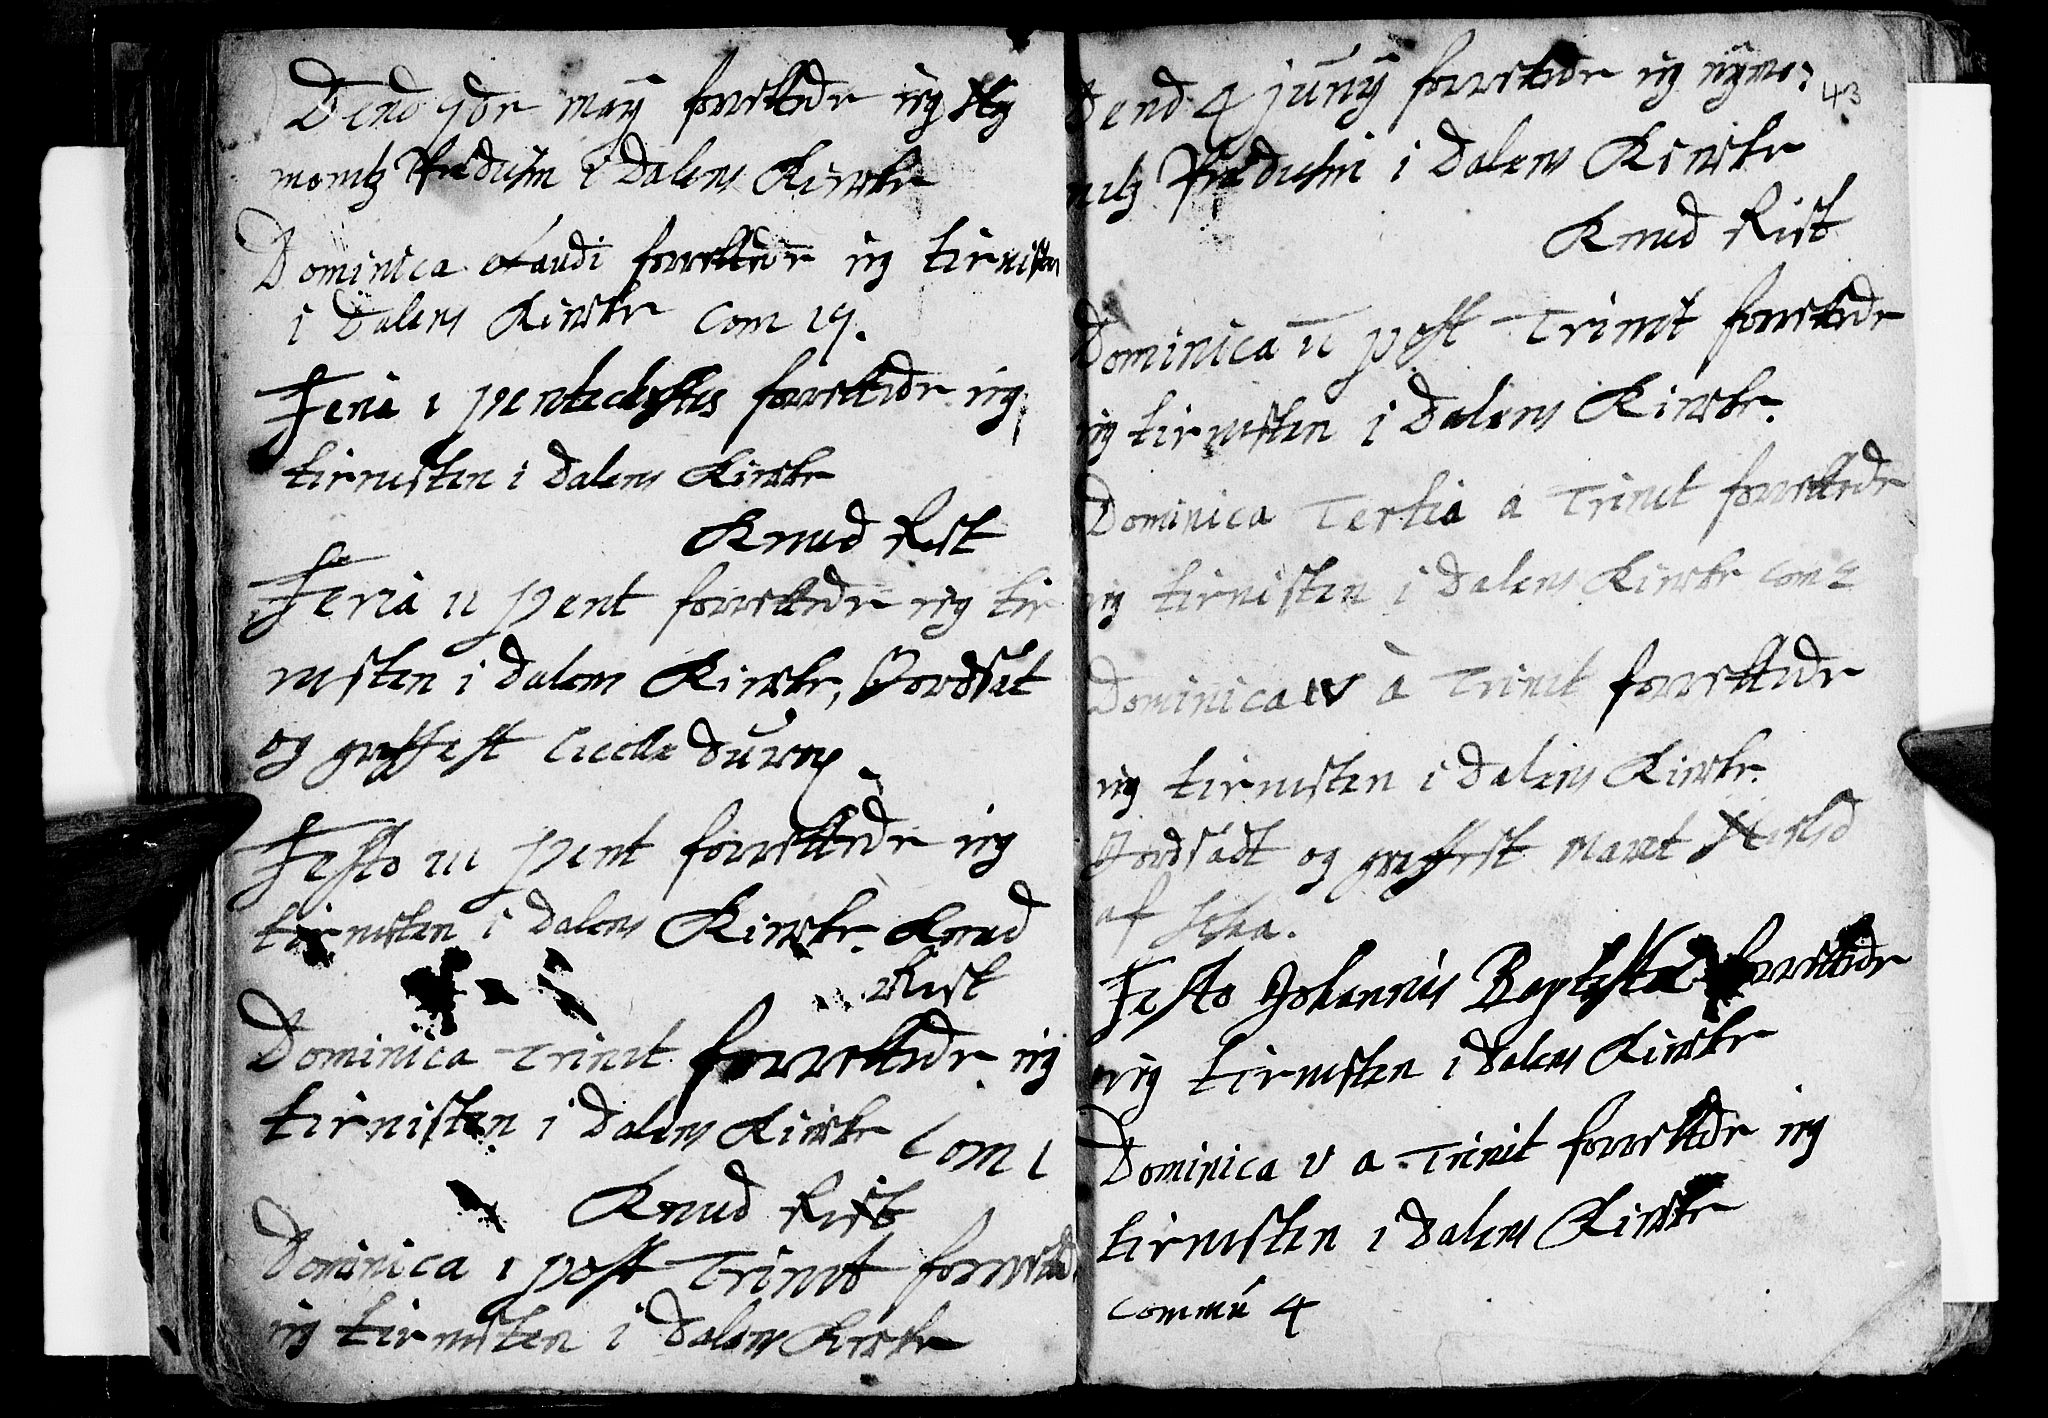 Dend 7de maÿ forrettede ieg Ny
monitz Prædichen i Dalens Kircke
Dominica Exaudi forrettede ieg tienisten
i Dalens Kircke Com 19.
Feria 1 pentecostes forrettede ieg
tienesten i dalens Kircke
Knud Rist
Feria II pent forrettede ieg tie
nesten i dalens Kircke, Jordsat
og græffest Cicelle
Festo III pent forrettede ieg
tienesten i dalens Kircke. Knud
Rist
Dominica Trinit forrettede ieg
tienisten i Dalens Kircke Com 1
Knud Rist
Dominica 1 post Trinit forretted
ieg tienesten i Dalens Kircke
43
Dend 4 junÿ forrettede ieg nÿmo:
nitz Prædichen i Dalens Kircke
Knud Rist
Dominica II post Trinit forrettede
ieg tienesten i Dalens Kircke.
Dominica Tertia a Trinit forrettede
ieg tienisten i Dalens Kircke Com 2
Dominica IV à Trinit forrettede
ieg tienesten i Dalens Kircke.
Jordsadt og græffest Maret
af
Festo Johannis Baptistæ forrettede
ieg tienesten i Dalens Kircke
Dominica V a Trinit forrettede ieg
tienesten i Dalens Kircke
Commu 4